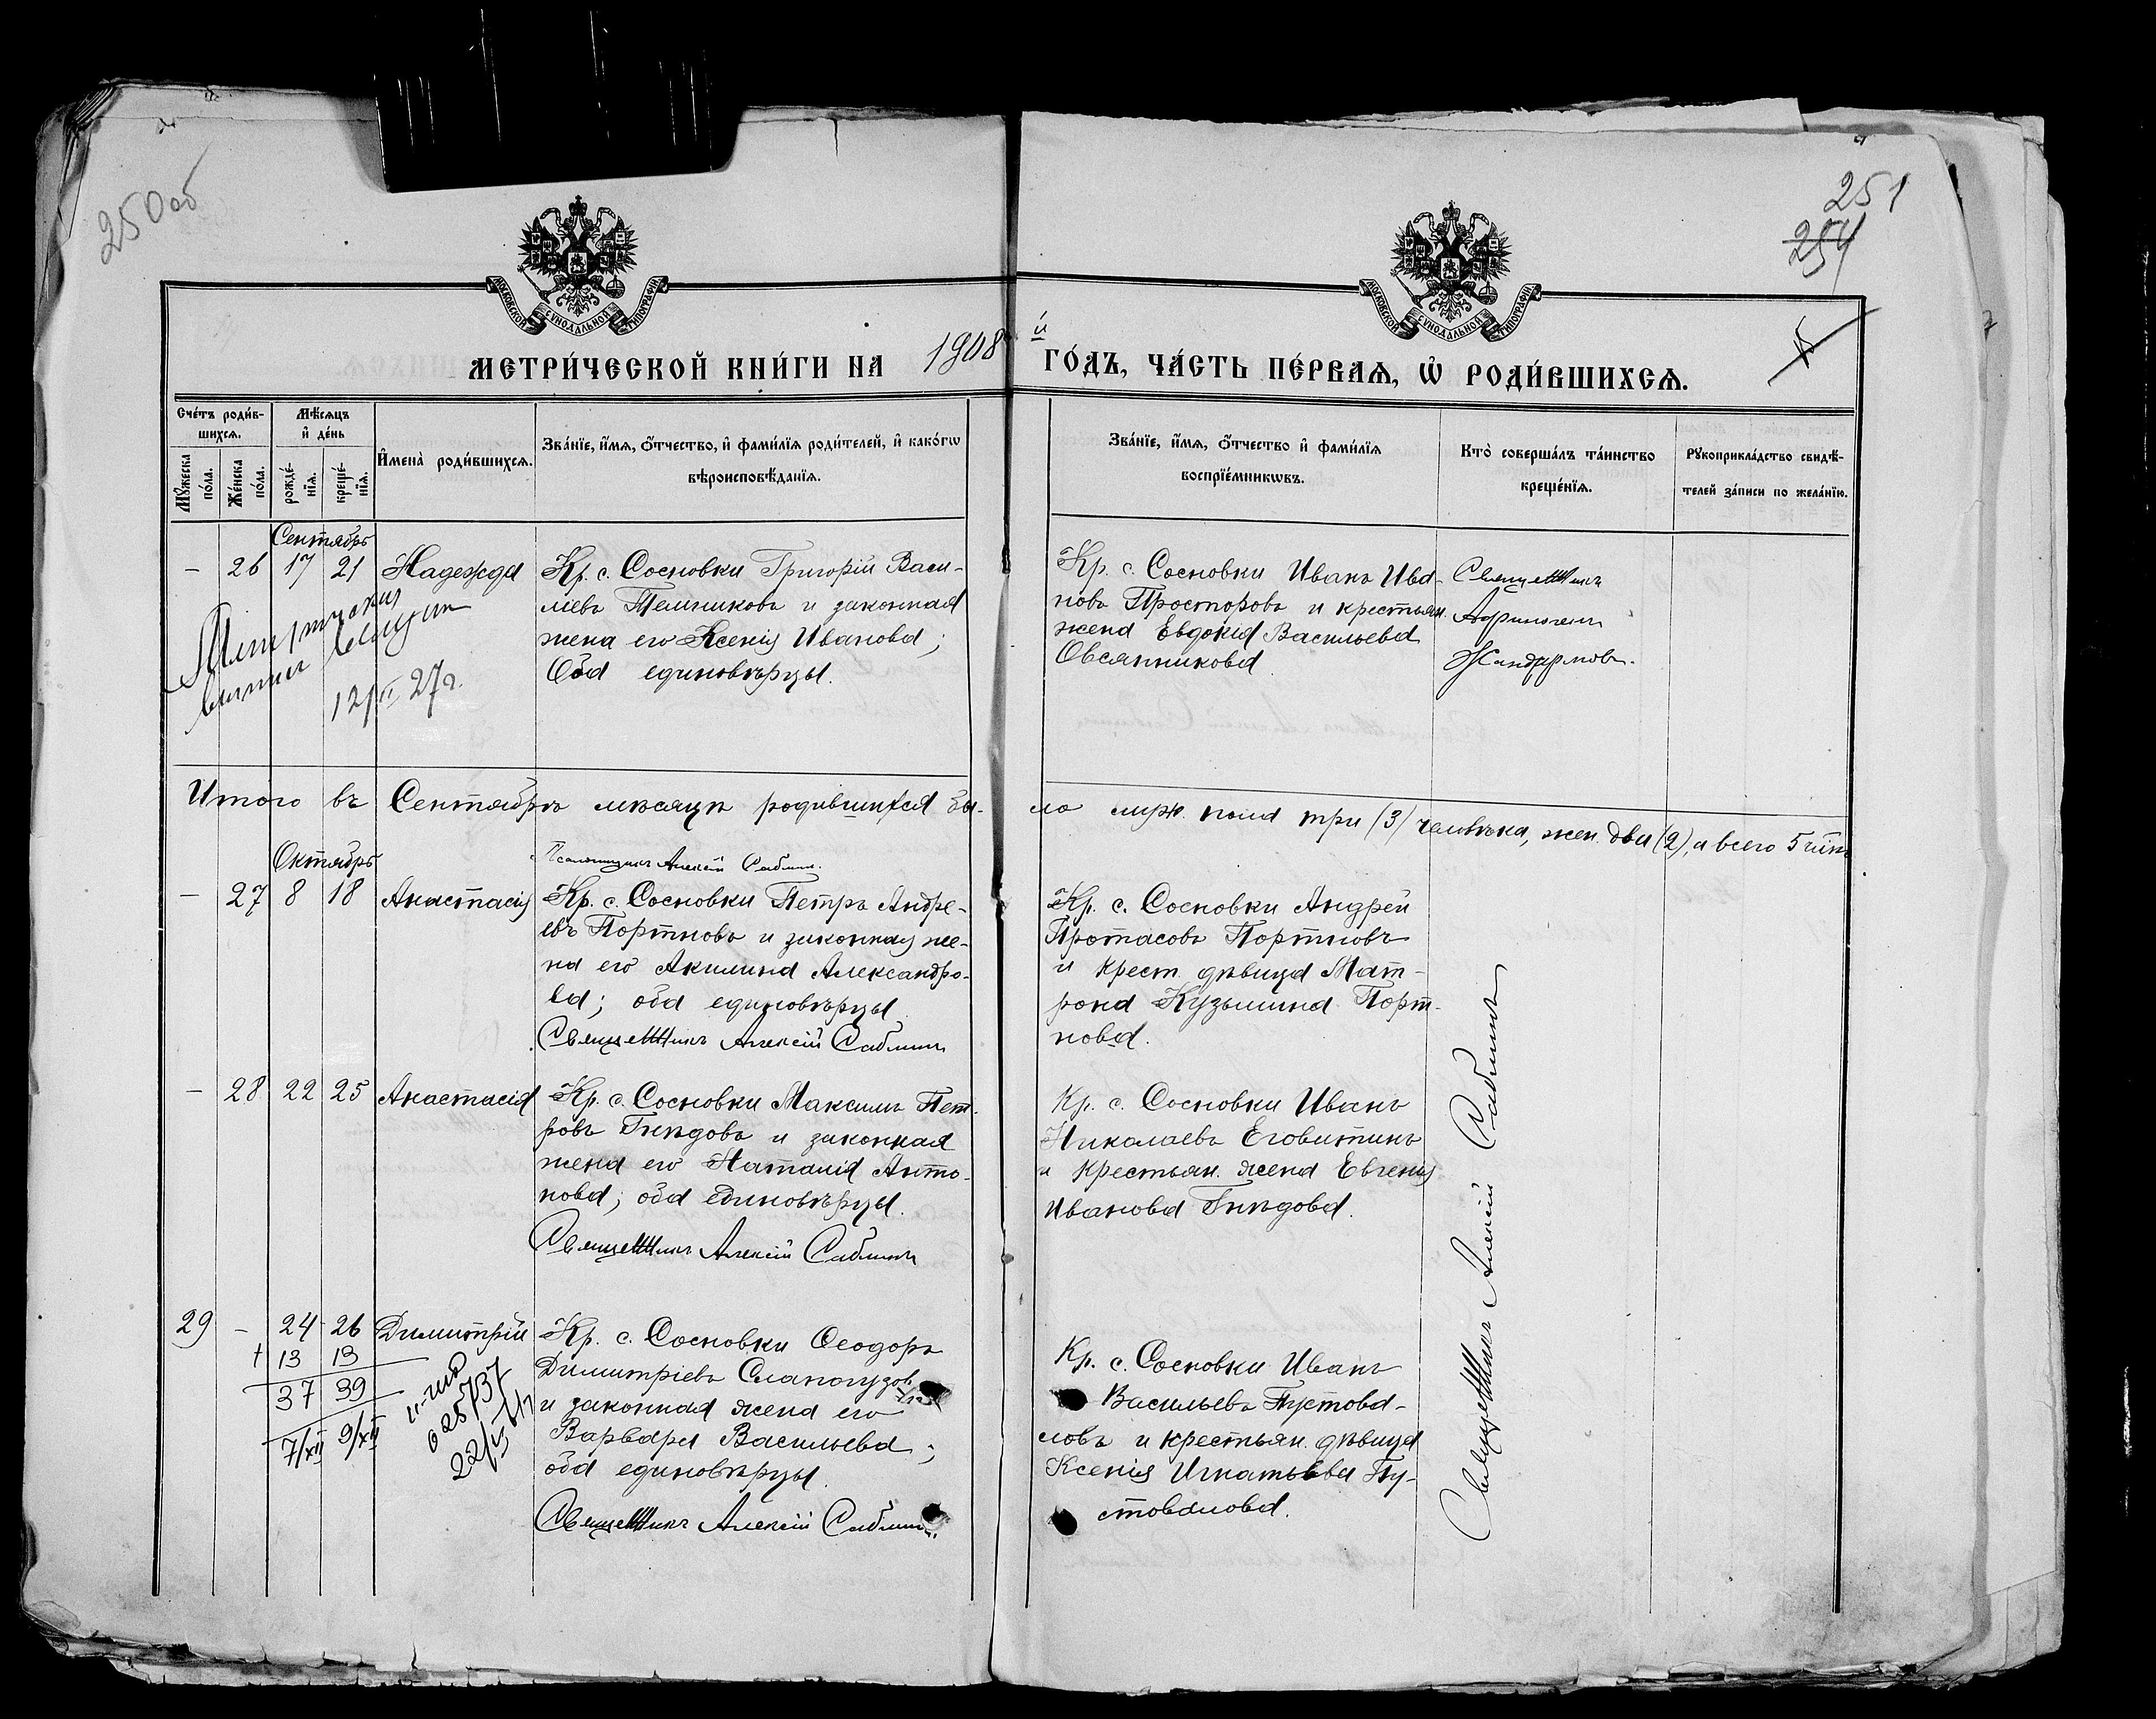 250 об
251
254
МОСКОВСКОЙ СѴНОДАЛЬНОЙ ТИПОГРАФІИ
МОСКОВСКОЙ СѴНОДАЛЬНОЙ ТИПОГРАФІИ
МЕТРИ́ЧЕСКОЙ КНИ́ГИ НА 1908 й ГО́ДЪ, ЧА́СТЬ ПЕ́РВАѦ, Ѡ҆ РОДИ́ВШИХСѦ.
Сче́тъ роди́в-
шихсѧ.
Мѣ́сѧцъ
и҆ де́нь
Мꙋ́жеска
по́ла.
Же́нска
по́ла.
рожде́-
нїѧ.
креще́-
нїѧ.
И҆мена̀ роди́вшихсѧ.
Зва́нїе, и҆́мѧ, ѻ҆́тчество, и҆ фами́лїѧ роди́телей, и҆ како́гѡ
вѣроисповѣ́данїѧ.
Зва́нїе, и҆́мѧ, ѻ҆́тчество и҆ фами́лїѧ
воспрїе́мникѡвъ.
Кто̀ соверша́лъ та́инство
креще́нїѧ.
Рꙋкоприкла́дство свидѣ́-
телей за́писи по жела́нїю.
Сентябрь
— 26 17 21 Надежда
Кр. с. Сосновки Григорій Васи-
льевъ и законная
жена его Ксенія Иванова;
Оба единовѣрцы.
Кр. с. Сосновки Иванъ Ива-
новъ Просторовъ и крестьян.
жена Евдокія Васильева
Овсянникова
Священникъ
Жандармовъ.
12/II 27 г.
Итого въ Сентябрѣ мѣсяцѣ родившихся бы-
ло муж. пола три (3) человѣка, жен. два (2), а всего 5
Октябрь
Псаломщикъ Алексій Саблинъ.
— 27 8 18 Анастасія
Кр. с. Сосновки Петръ Андре-
евъ Портновъ и законная же-
на его Акилина Александро-
ва; оба единовѣрцы
Священникъ Алексій Саблинъ
Кр. с. Сосновки Андрей
Протасовъ Портновъ
и крест. дѣвица Мат-
рона Кузьмина Порт-
нова.
— 28 22 25 Анастасія
Кр. с. Сосновки Максимъ Пет-
ровъ Гнѣдовъ и законная
жена его Наталія Анто-
нова; оба единовѣрцы.
Священникъ Алексій Саблинъ
Кр. с. Сосновки Иванъ
Николаевъ Еговитинъ
и крестьян. жена Евгенія
Иванова Гнѣдова.
29 — 24 26 Димитрій
+ 13 13
37 39
7/XII 9/XII
625737
Кр. с. Сосновки Ѳеодоръ
Димитріевъ Слапогузовъ
и законная жена его
Варвара Васильева;
оба единовѣрцы.
Священникъ Алексій Саблинъ
Кр. с. Сосновки Иванъ
Васильевъ Пустова-
ловъ и крестьян. дѣвица
Ксенія Игнатьева Пу-
стовалова.
Священникъ Алексій Саблинъ